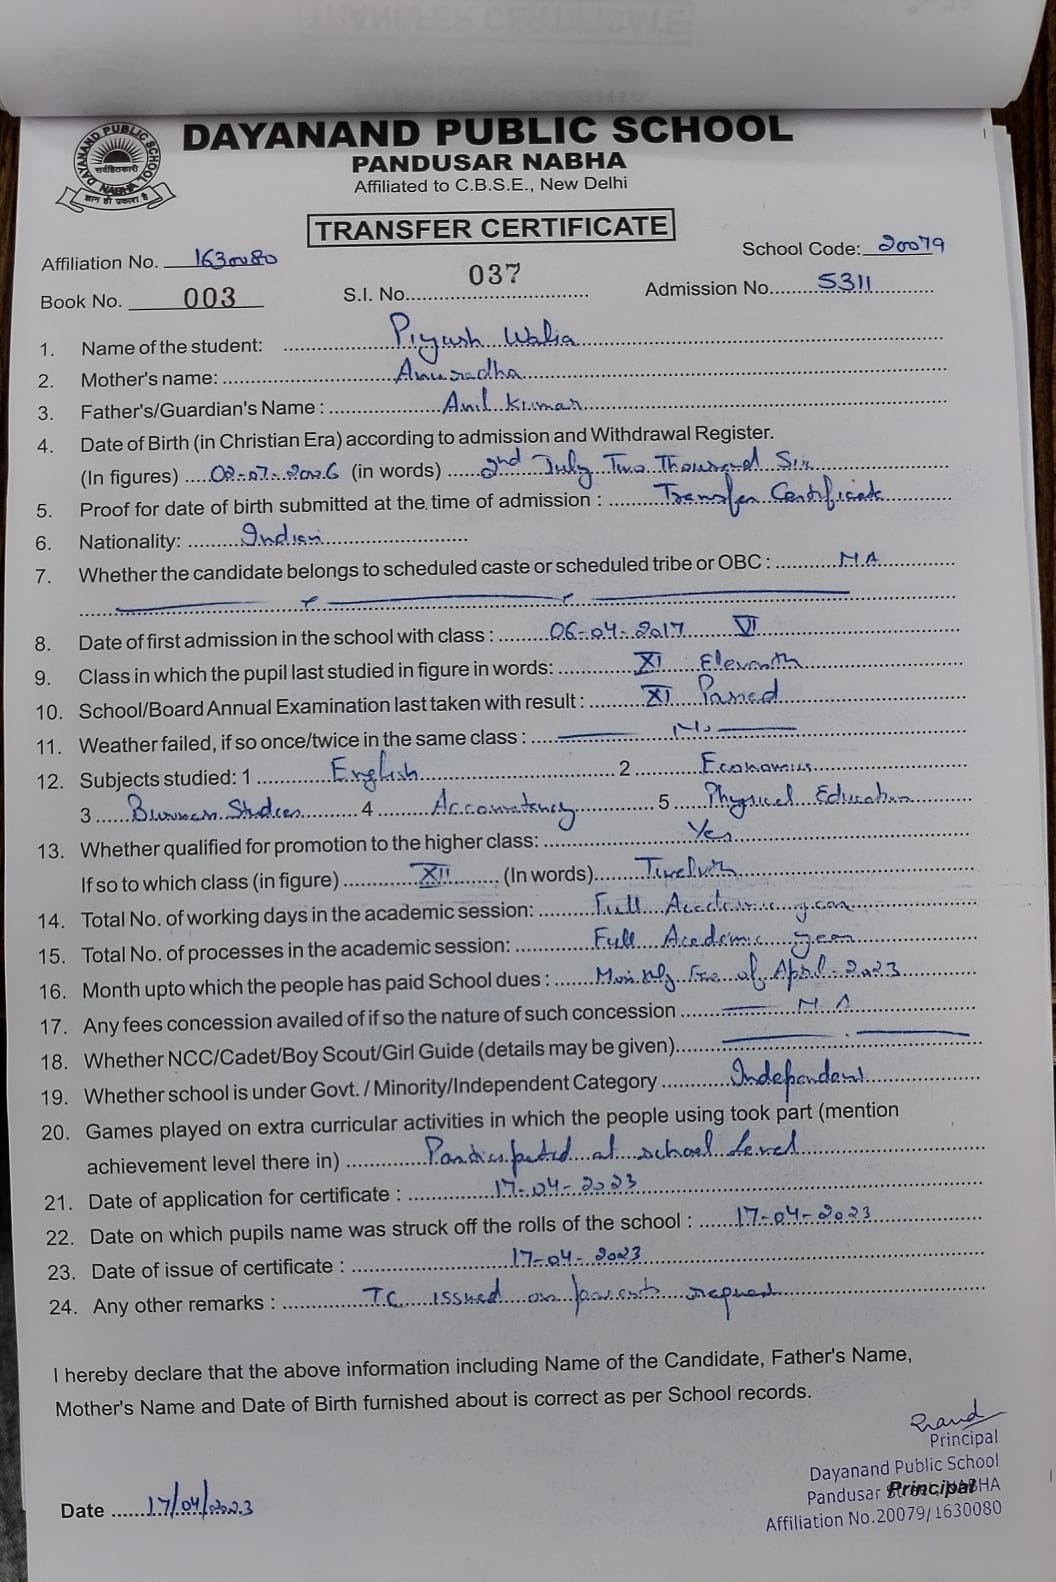 DAYANAND PUBLIC SCHOOL
PANDUSAR NABHA
Affiliated to C.B.S.E., New Delhi
DAYANAND PUBLIC SCHOOL
सर्वहितकारी
NABHA
ज्ञान ही प्रकाश है
TRANSFER CERTIFICATE
Affiliation No. 1630080 School Code: 20079
Book No. 003 S.I. No. 037 Admission No. 5311
1. Name of the student: Piyush Walia
2. Mother's name: Anuradha
3. Father's/Guardian's Name : Anil Kumar
4. Date of Birth (in Christian Era) according to admission and Withdrawal Register.
(In figures) 02-07-2006 (in words) 2nd July Two Thousand Six
5. Proof for date of birth submitted at the time of admission : Transfer Certificate
6. Nationality: Indian
7. Whether the candidate belongs to scheduled caste or scheduled tribe or OBC : N A
8. Date of first admission in the school with class : 06-04-2017 VI
9. Class in which the pupil last studied in figure in words: XI Eleventh
10. School/Board Annual Examination last taken with result : XI Passed
11. Weather failed, if so once/twice in the same class : No
12. Subjects studied: 1 English 2 Economics
3 Business Studies 4 Accountancy 5 Physical Education
13. Whether qualified for promotion to the higher class: Yes
If so to which class (in figure) XII (In words) Twelvth
14. Total No. of working days in the academic session: Full Academic year
15. Total No. of processes in the academic session: Full Academic year
16. Month upto which the people has paid School dues : Monthly Fee of April-2023
17. Any fees concession availed of if so the nature of such concession N A
18. Whether NCC/Cadet/Boy Scout/Girl Guide (details may be given)
19. Whether school is under Govt. / Minority/Independent Category Independent
20. Games played on extra curricular activities in which the people using took part (mention
achievement level there in) Participated at school level
21. Date of application for certificate : 17-04-2023
22. Date on which pupils name was struck off the rolls of the school : 17-04-2023
23. Date of issue of certificate : 17-04-2023
24. Any other remarks : TC issued on parents request
I hereby declare that the above information including Name of the Candidate, Father's Name,
Mother's Name and Date of Birth furnished about is correct as per School records.
Principal
Dayanand Public School
Pandusar NABHA
Principal
Affiliation No.20079/1630080
Date 17/04/2023